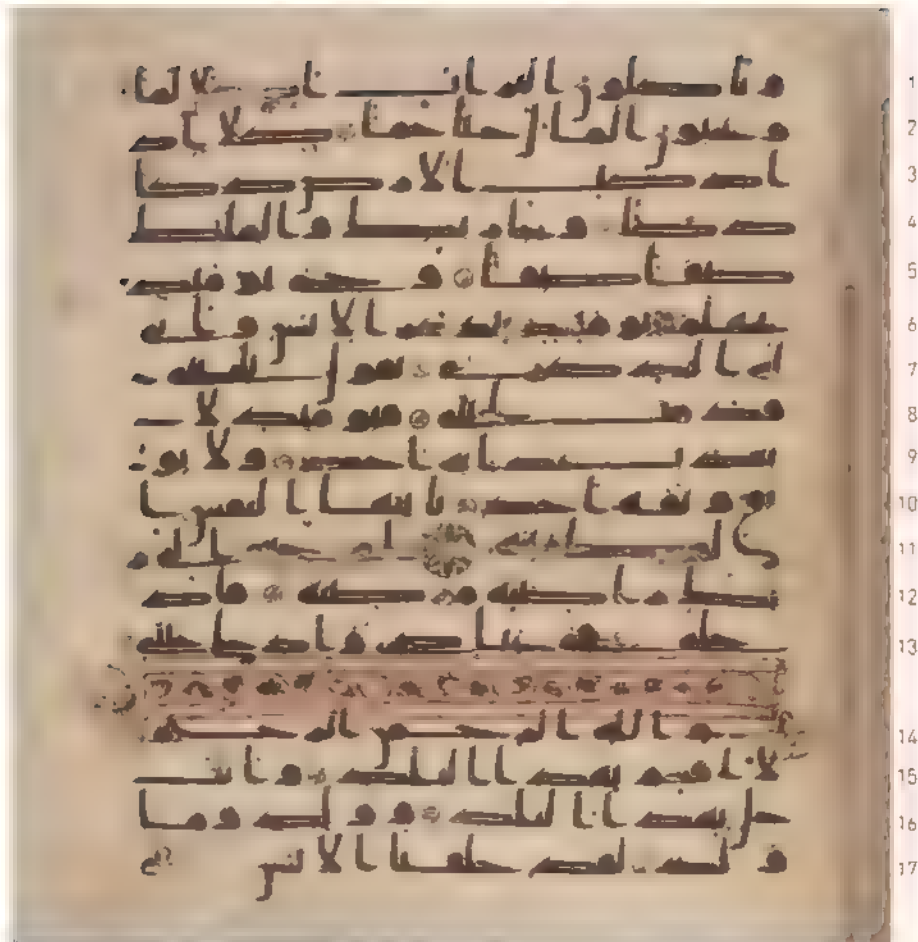 1 وتاكلون التراث اكلا لما
2 وتحبون المال حبا جما كلا اذ
3 ا دكت الارض دكا
4 دكا وجا ربك والملك
5 صفا صفا وجاي يومئذ
6 بجهنم يومئذ يتذكر الانسن و
7 انى له الذكرى يقول يليتنى
8 قدمت لحياتى فيومئذ لا
9 يعذب عذابه احد ولا يو
10 ثق وثاقه احد يايتها النفس ا
11 لمطمئنة ارجعى الى ر
12 بك راضية مرضية فاد
13 خلى فى عبدى وادخلى جنتى
14 بسم الله الرحمن الرحيم
15 لا اقسم بهذا البلد وانت
16 حل بهذا البلد ووالد وما
17 ولد لقد خلقنا الانسن فى